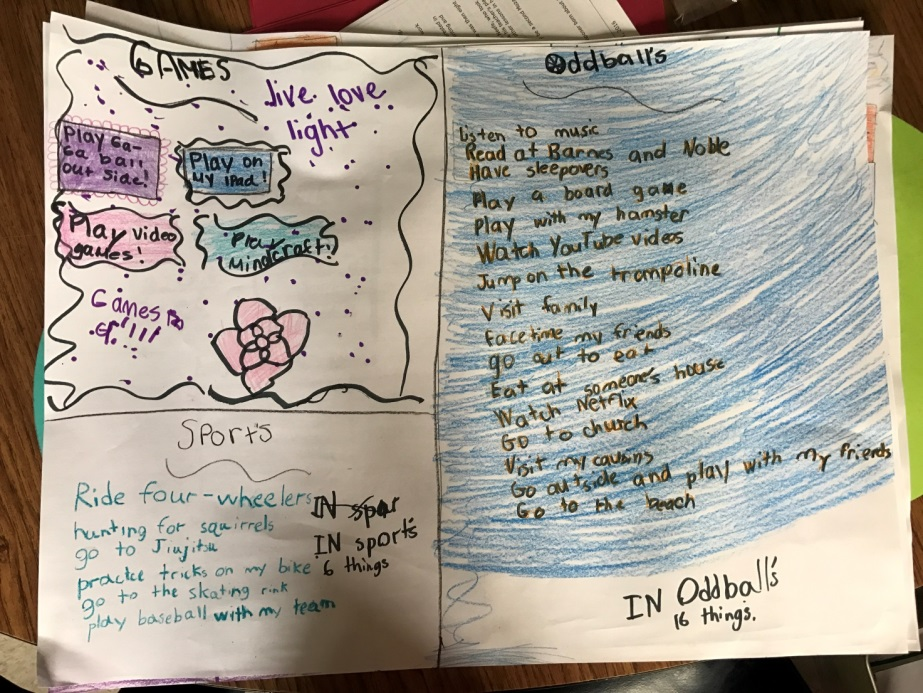 GAMES
live love
light
Play Ga-
Ga ball
out side!
Play on
My iPad!
Play video
games!
Play
Mindcraft!
Games
Sports
Ride four-wheelers
hunting for squirrels
go to Jiujitsu
practice tricks on my bike
go to the skating rink
play baseball with my team
IN spor
IN sports
6 things
Oddball's
Listen to music
Read at Barnes and Noble
Have sleepovers
Play a board game
Play with my hamster
Watch YouTube videos
Jump on the trampoline
Visit family
facetime my friends
go out to eat
Eat at someone's house
Watch Netflix
Go to church
Visit my causins
Go outside and play with my friends
Go to the beach
IN Oddball's
16 things.